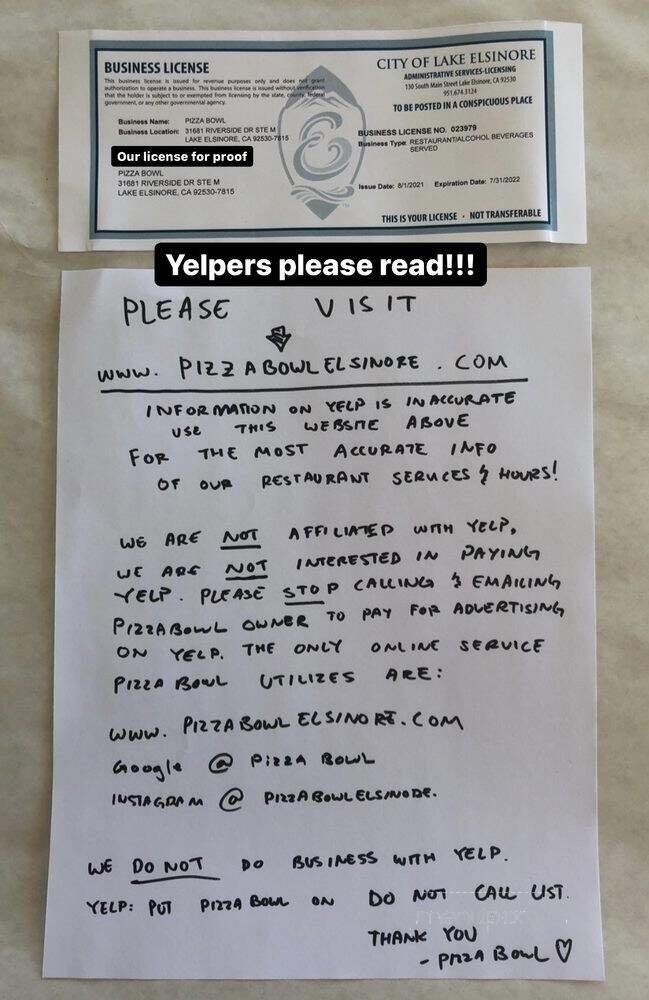 BUSINESS LICENSE
This business license is issued for revenue purposes only and does not grant
authorization to operate a business. This business license is issued without verification
that the holder is subject to or exempted from licensing by the state, county, federal
government, or any other governmental agency.
Business Name: PIZZA BOWL
Business Location: 31681 RIVERSIDE DR STE M
LAKE ELSINORE, CA 92530-7815
Our license for proof
PIZZA BOWL
31681 RIVERSIDE DR STE M
LAKE ELSINORE, CA 92530-7815
CITY OF LAKE ELSINORE
ADMINISTRATIVE SERVICES-LICENSING
130 South Main Street Lake Elsinore, CA 92530
951.674.3124
TO BE POSTED IN A CONSPICUOUS PLACE
BUSINESS LICENSE NO. 023979
Business Type: RESTAURANT/ALCOHOL BEVERAGES
SERVED
Issue Date: 8/1/2021 Expiration Date: 7/31/2022
THIS IS YOUR LICENSE · NOT TRANSFERABLE
Yelpers please read!!!
PLEASE VISIT
www. PIZZABOWLELSINORE . COM
INFORMATION ON YELP IS INACCURATE
USE THIS WEBSITE ABOVE
FOR THE MOST ACCURATE INFO
OF OUR RESTAURANT SERVICES & HOURS!
WE ARE NOT AFFILIATED WITH YELP,
WE ARE NOT INTERESTED IN PAYING
YELP. PLEASE STOP CALLING & EMAILING
PIZZABOWL OWNER TO PAY FOR ADVERTISING
ON YELP. THE ONLY ONLINE SERVICE
PIZZA BOWL UTILIZES ARE:
www. PIZZABOWLELSINORE.COM
Google @ PIZZA BOWL
INSTAGRAM @ PIZZABOWLELSINORE.
WE DO NOT DO BUSINESS WITH YELP.
YELP: PUT PIZZA BOWL ON DO NOT CALL LIST.
THANK YOU
- PIZZA BOWL ♡